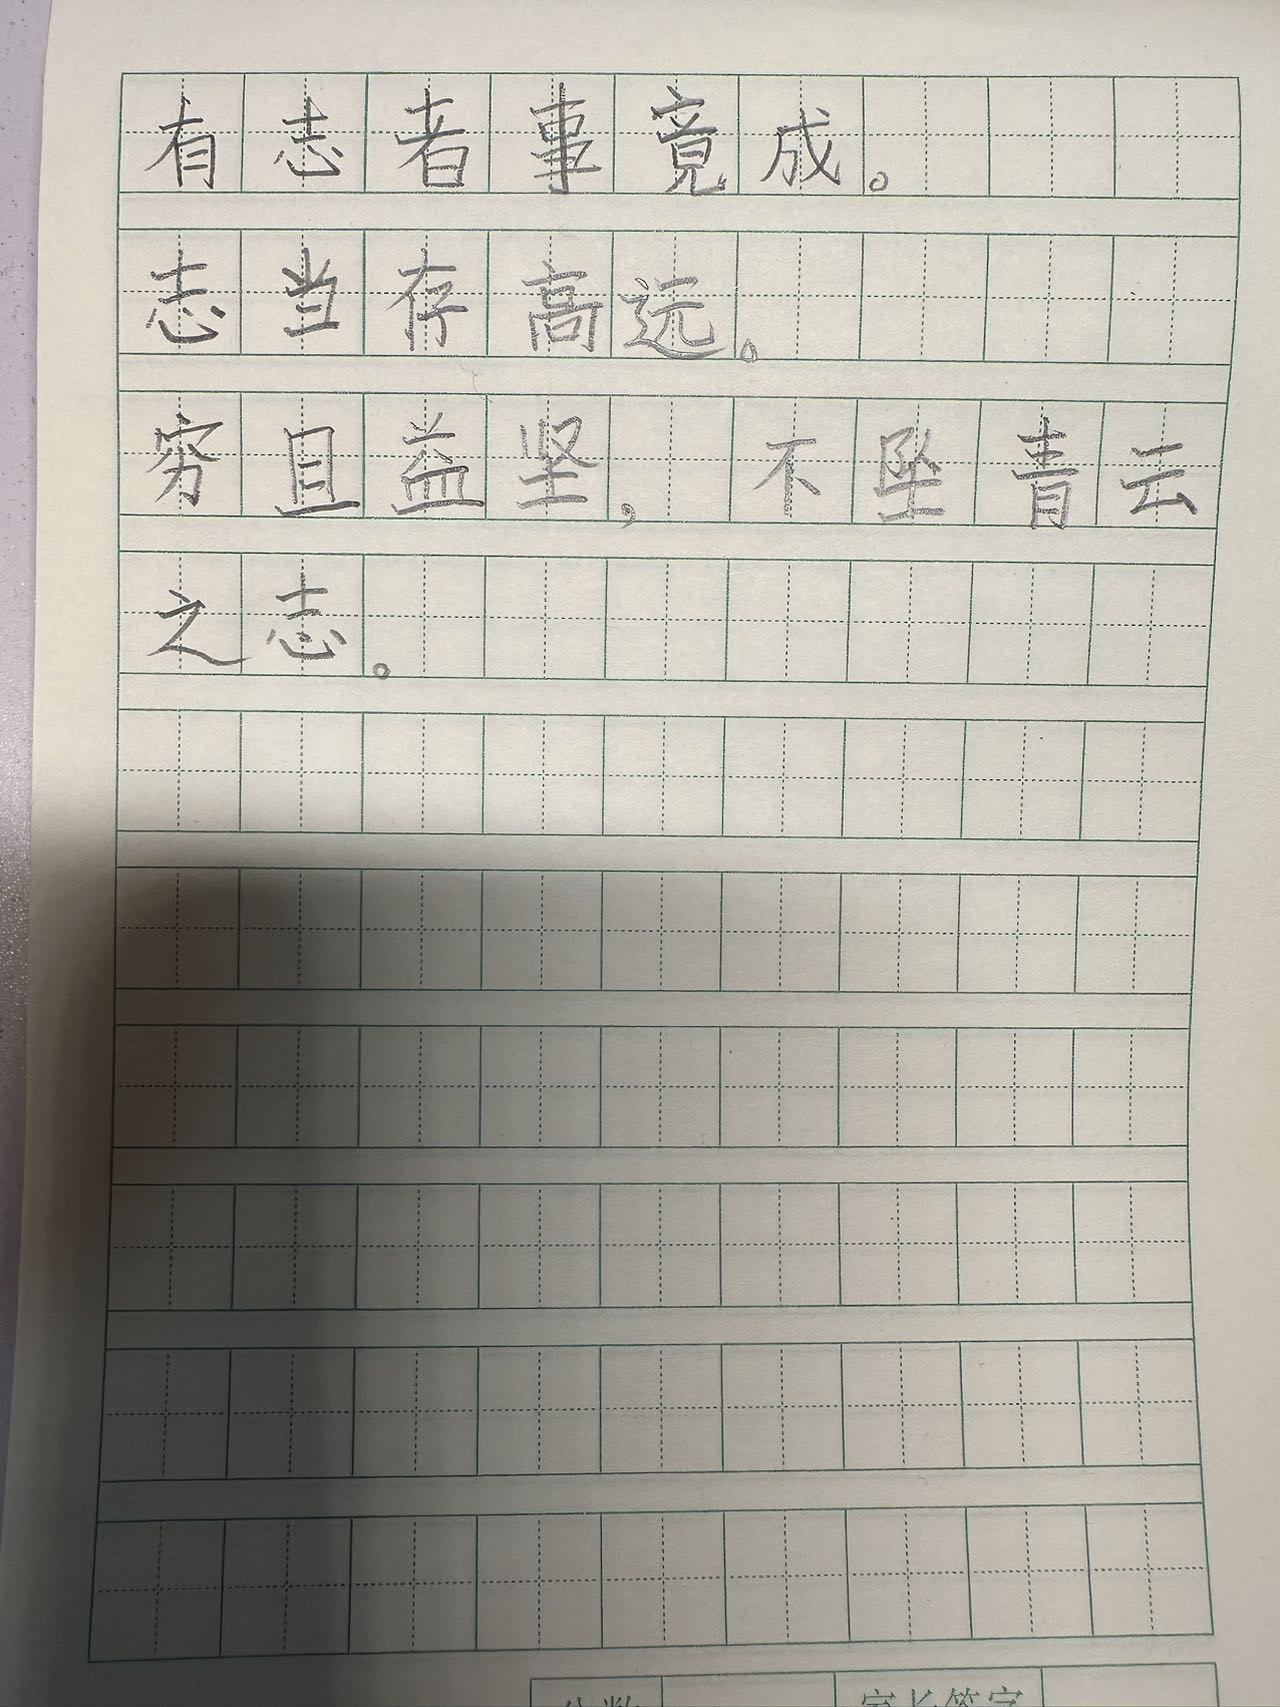 有志者事竟成。
志当存高远。
穷且益坚，不坠青云
之志。
分数 家长签字